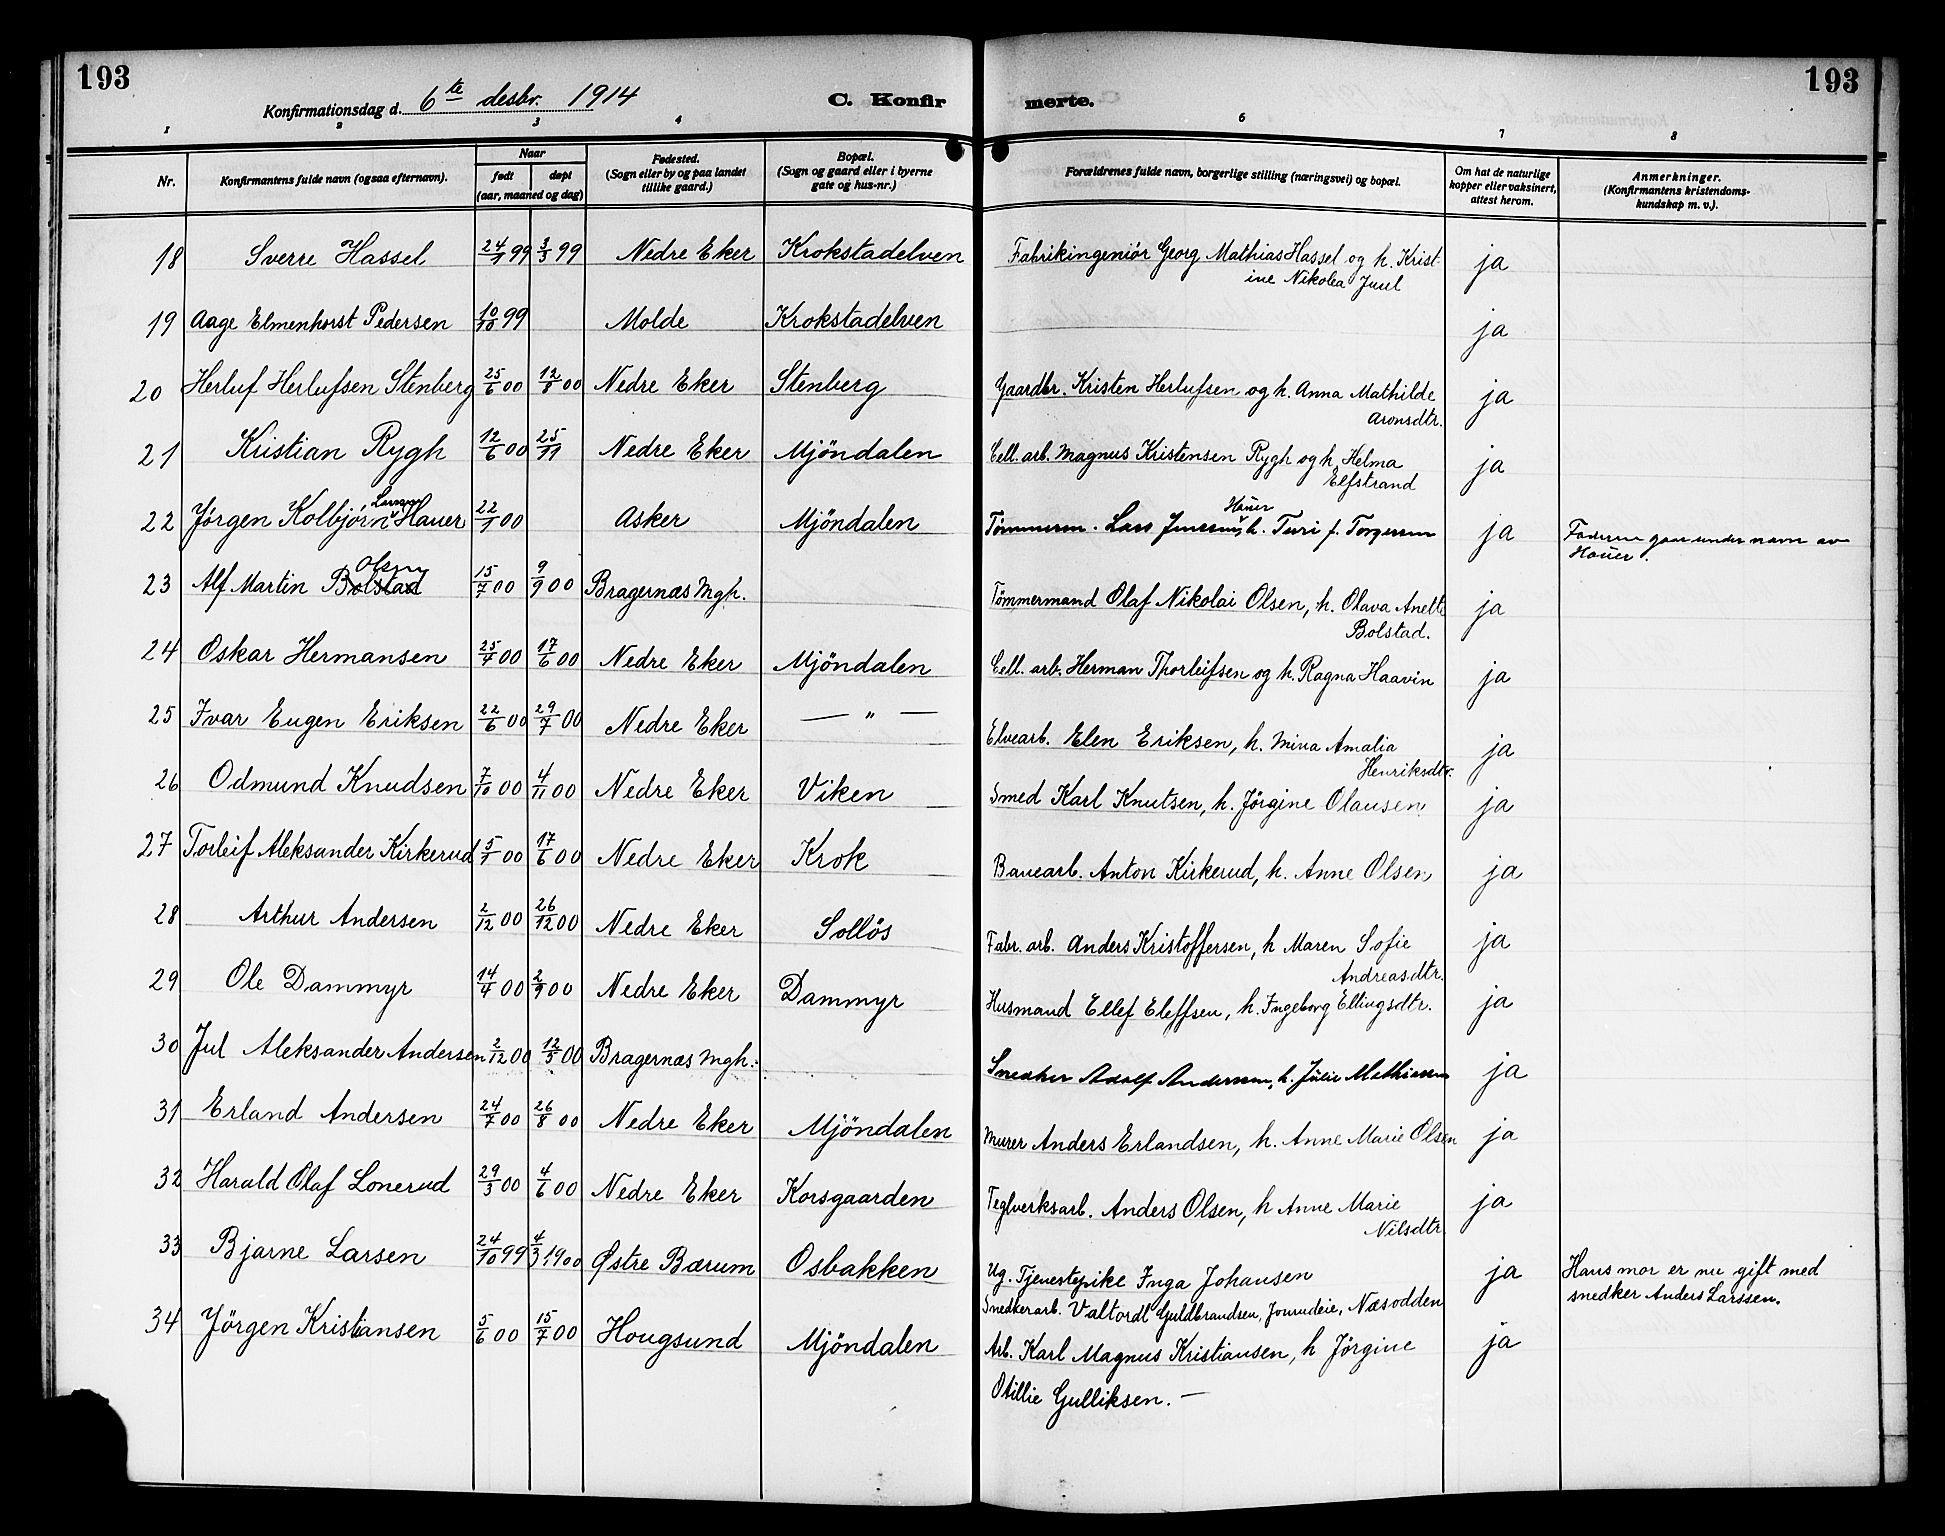 193
Konfirmationsdag d. 6te desbr. 1914
C. Konfirmerte.
193
1 2 3 4 6 7 8
Nr. Konfirmantens fulde navn (ogsaa efternavn). Naar født døpt (aar, maaned og dag) Fødested. (Sogn eller by og paa landet tillike gaard.) Bopæl. (Sogn og gaard eller i byerne gate og hus-nr.) Forældrenes fulde navn, borgerlige stilling (næringsvei) og bopæl. Om hat de naturlige kopper eller vaksinert, attest herom. Anmerkninger. (Konfirmantens kristendomskundskap m. v.).
18 Sverre Hassel 24/1 99 3/3 99 Nedre Eker Krokstadelven Fabrikingeniör Georg Mathias Hassel og h. Krist
ine Nikolea Juul ja
19 Aage Elmenhorst Pedersen 10/10 99 Molde Krokstadelven ja
20 Herluf Herlufsen Stenberg 25/6 00 12/8 00 Nedre Eker Stenberg Gaardbr. Kristen Herlufsen og h. Anna Mathilde
Aronsdtr. ja
21 Kristian Rygh 12/6 00 25/11 Nedre Eker Mjöndalen Cell. arb. Magnus Kristensen Rygh og h. Helma
Elfstrand ja
22 Jørgen Kolbjørn Hauer 22/1 00 Asker Mjöndalen Tømmerm. Lars Hauer, h. Turi f. Torgersen ja Faderen gaar under navn av
Hauer.
23 Alf Martin Bolstad Olsen 15/7 00 9/9 00 Bragernæs Mgh. Tömmermand Olaf Nikolai Olsen, h. Olava Anette
Bolstad. ja
24 Oskar Hermansen 25/4 00 17/6 00 Nedre Eker Mjöndalen Cell. arb. Herman Thorleifsen og h. Ragna Haavin ja
25 Ivar Eugen Eriksen 22/6 00 29/7 00 Nedre Eker — " — Elvearb. Elen Eriksen, h. Mina Amalia
Henriksdtr. ja
26 Odmund Knudsen 7/10 00 4/11 00 Nedre Eker Viken Smed Karl Knutsen, h. Jörgine Olausen ja
27 Torleif Aleksander Kirkerud 5/1 00 17/6 00 Nedre Eker Krok Banearb. Anton Kirkerud, h. Anne Olsen ja
28 Arthur Andersen 2/12 00 26/12 00 Nedre Eker Sollös Fabr. arb. Anders Kristoffersen, h Maren Sofie
Andreasdtr. ja
29 Ole Dammyr 14/4 00 2/9 00 Nedre Eker Dammyr Husmand Ellef Eleffsen, h. Ingeborg Ellingsdtr. ja
30 Jul Aleksander Andersen 2/12 00 12/5 00 Bragernæs Mgh. Snedker Adolf Andersen, h. Julie Mathisen ja
31 Erland Andersen 24/7 00 26/8 00 Nedre Eker Mjöndalen Murer Anders Erlandsen, h. Anne Marie Olsen ja
32 Harald Olaf Lonerud 29/3 00 4/6 00 Nedre Eker Korsgaarden Teglverksarb. Anders Olsen, h Anne Marie
Nilsdtr. ja
33 Bjarne Larsen 24/10 99 4/3 1900 Østre Bærum Osbakken Ug. Tjenestepike Inga Johansen
Snedkerarb. Guldbrandsen, Næsodden ja Hans mor er nu gift med
snedker Anders Larssen.
34 Jörgen Kristiansen 5/6 00 15/7 00 Hougsund Mjöndalen Arb. Karl Magnus Kristiansen, h Jörgine
Otillie Gulliksen. — ja